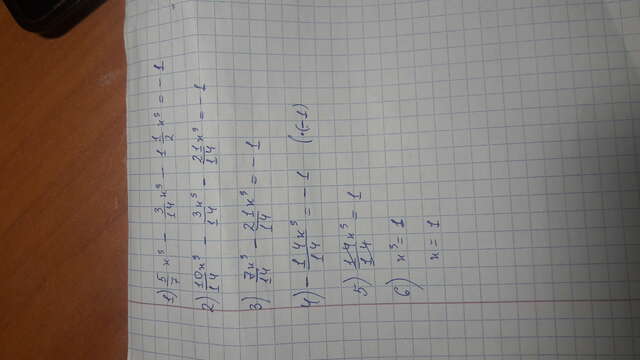 1) 5/7 x⁵ - 3/14 x⁵ - 1 1/2 x⁵ = - 1
2) 10x⁵/14 - 3x⁵/14 - 21x⁵/14 = - 1
3) 7x⁵/14 - 21x⁵/14 = - 1
4) - 14x⁵/14 = - 1 (·(-1)
5) 14x⁵/14 = 1
6) x⁵ = 1
x = 1